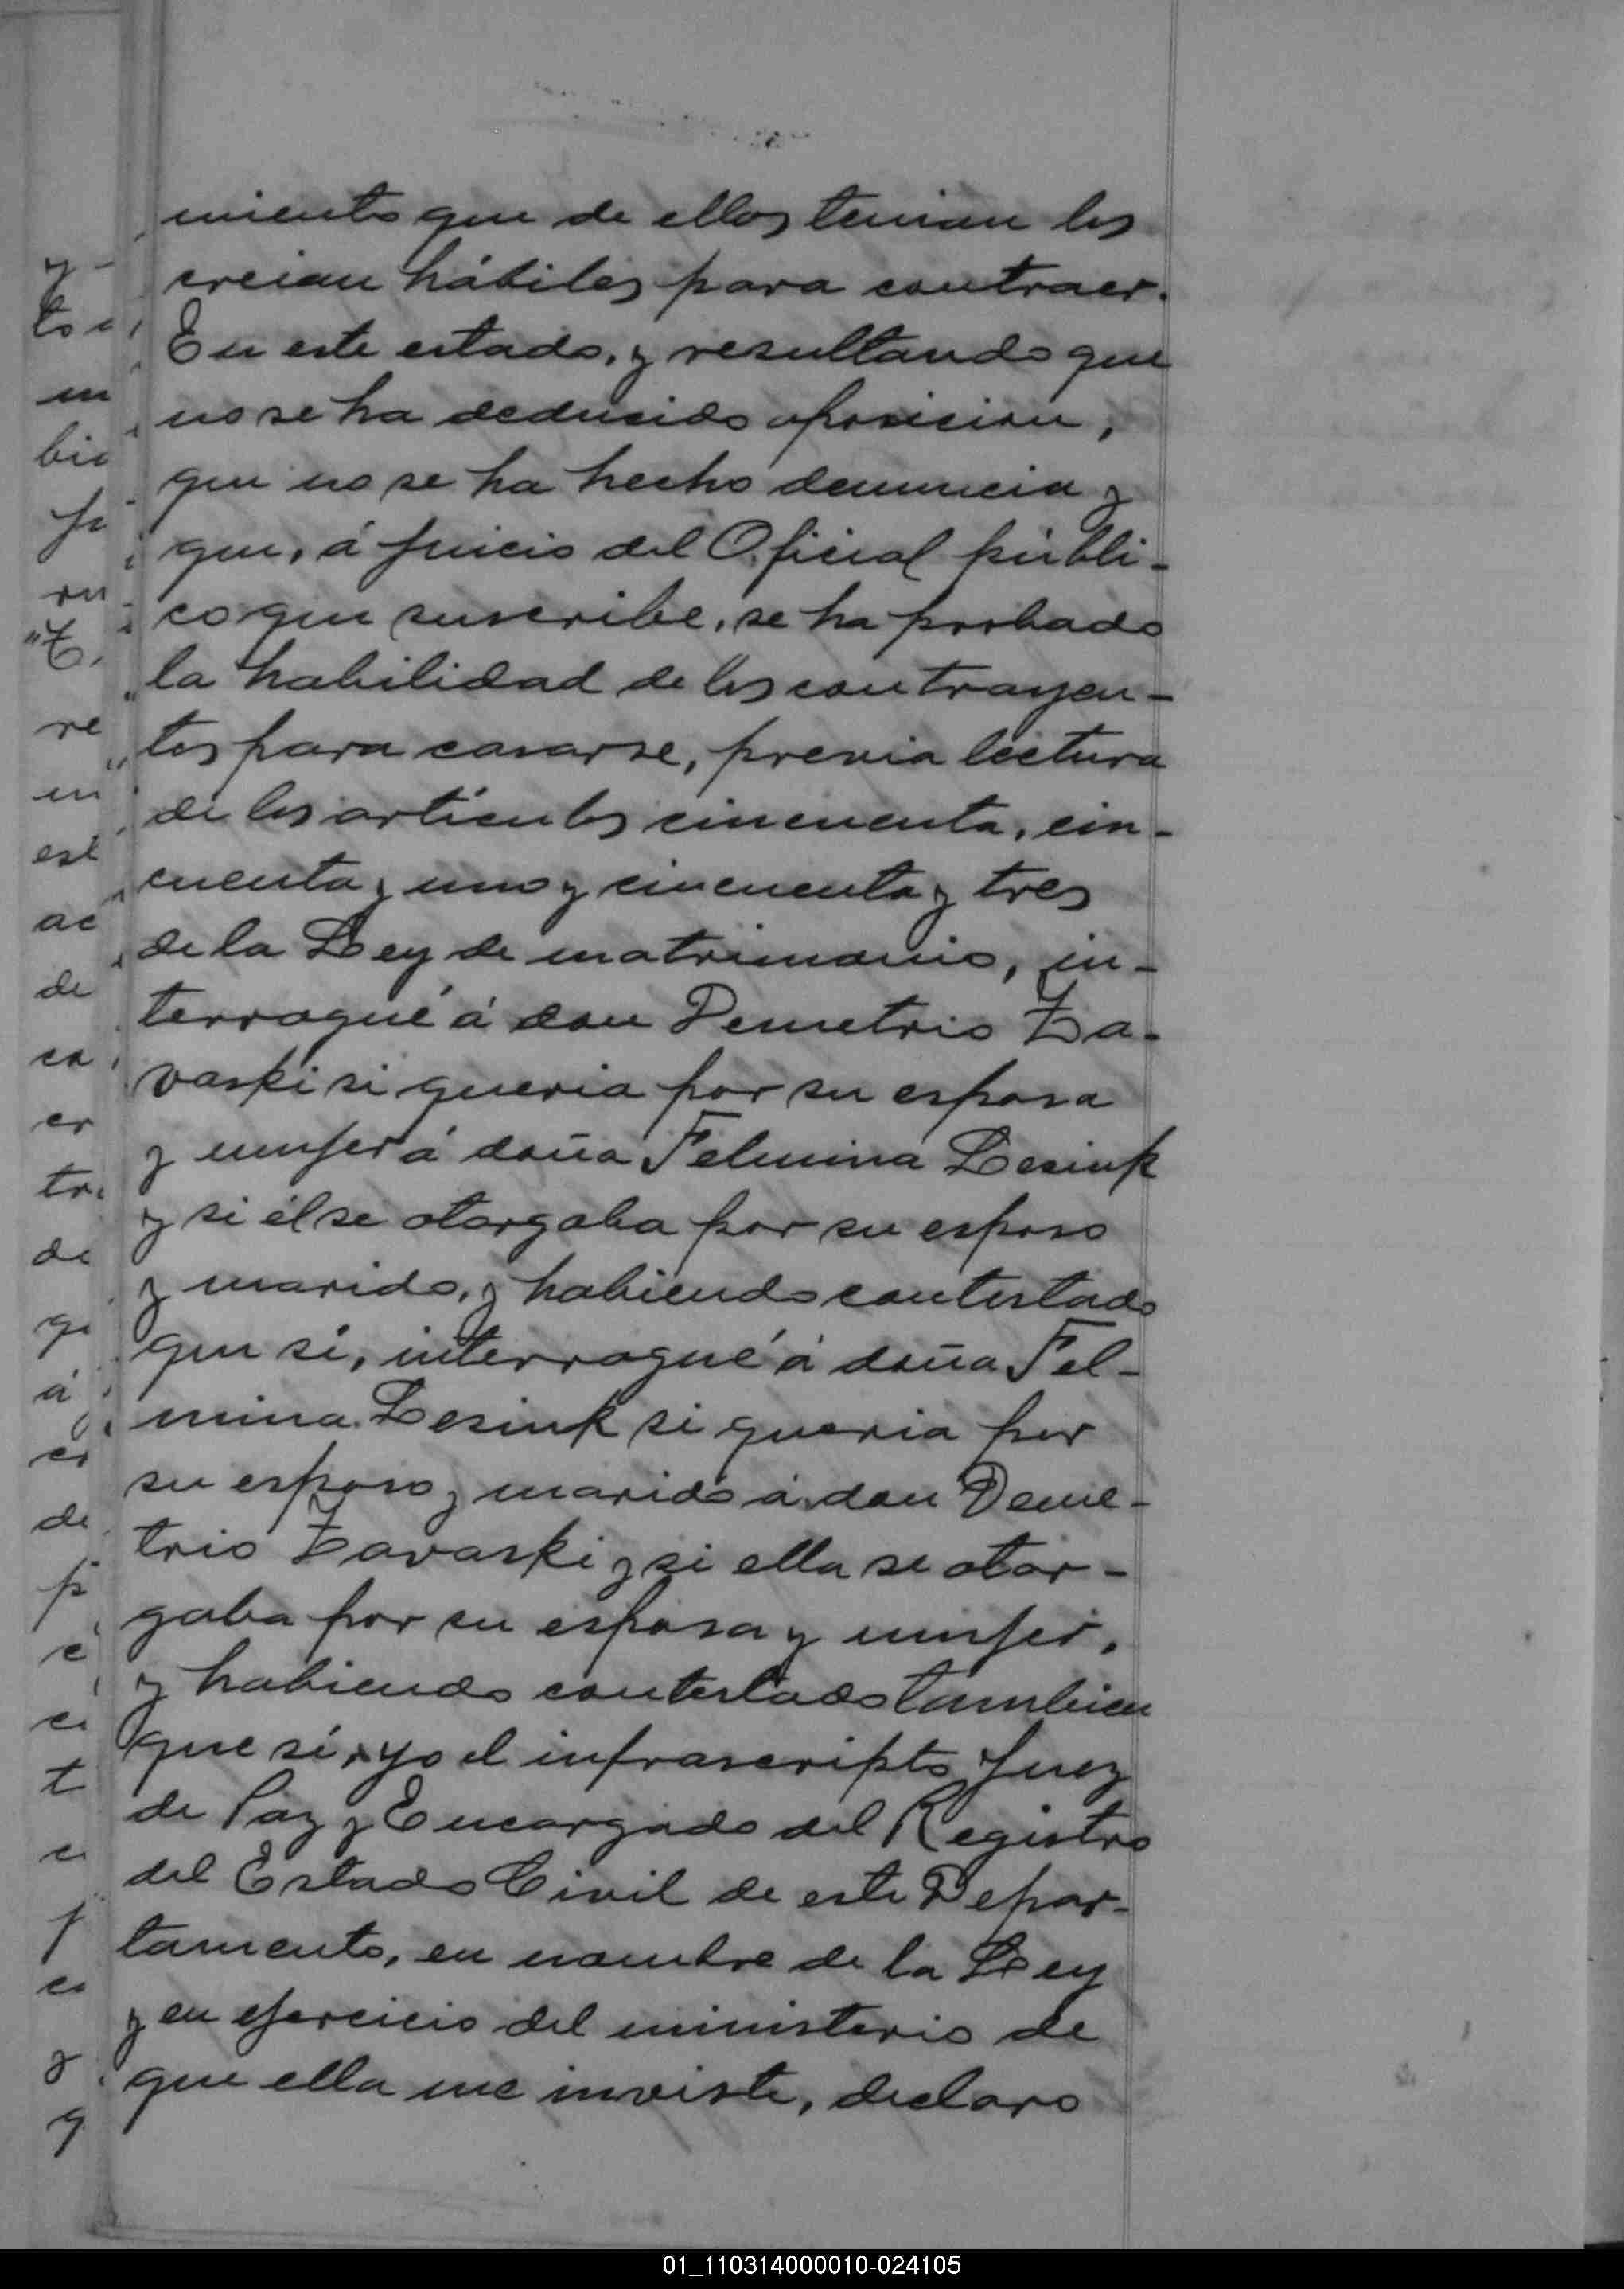 miento que de ellos tenian los
creian hábiles para contraer.
En este estado, y resultando que
no se ha deducido oposicion,
que no se ha hecho denuncia y
que, á juicio del Oficial públi-
co que suscribe, se ha probado
la habilidad de los contrayen-
tes para casarse, previa lectura
de los artículos cincuenta, cin-
cuenta y uno y cincuenta y tres
de la Ley de matrimonio, in-
terrogué á don Demetrio Za-
vaski si queria por su esposa
y mujer á doña Felmina Lesink
y si él se otorgaba por su esposo
y marido, y habiendo contestado
que sí, interrogué á doña Fel-
mina Lesink si queria por
su esposo y marido á don Deme-
trio Zavaski y si ella se otor-
gaba por su esposa y mujer,
y habiendo contestado tambien
que sí, yo el infrascripto Juez
de Paz y Encargado del Registro
del Estado Civil de este Depar-
tamento, en nombre de la Ley
y en ejercicio del ministerio de
que ella me inviste, declaro
01_110314000010-024105